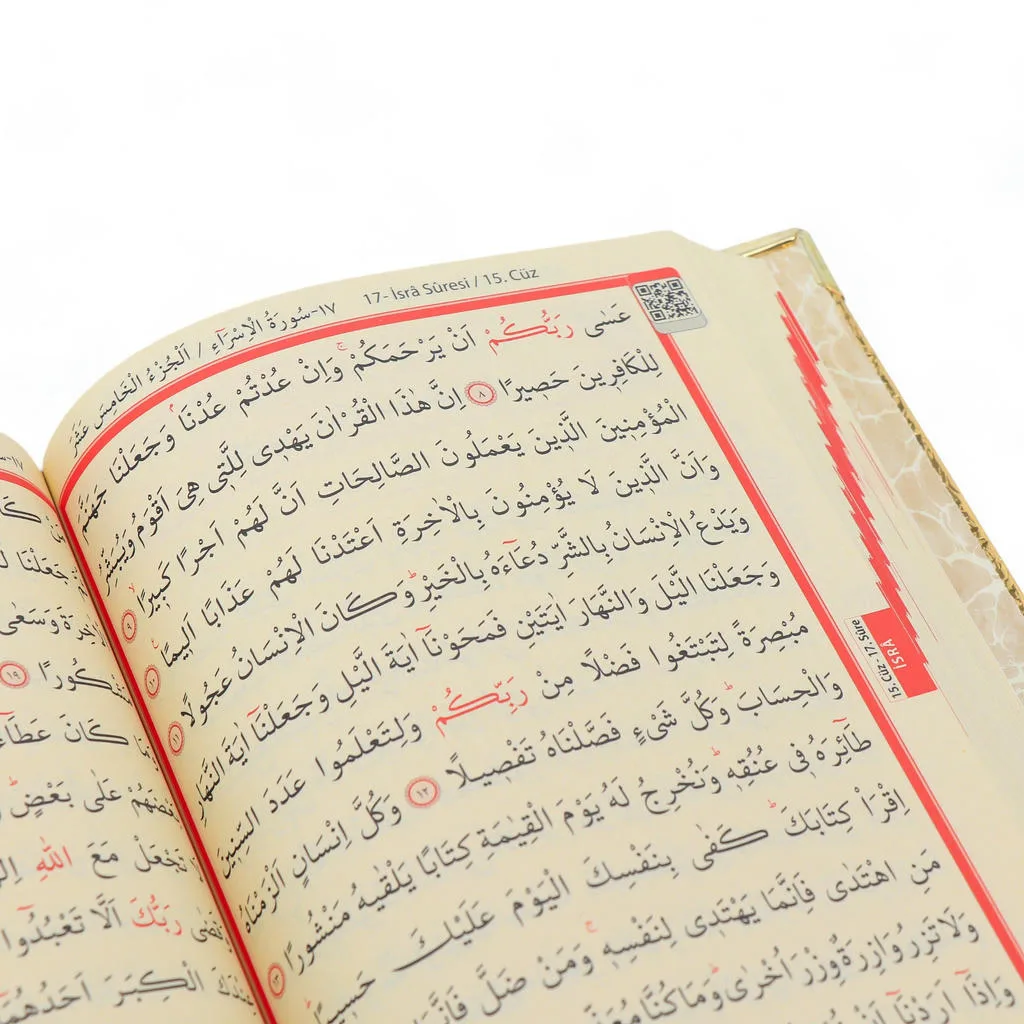 ١٧-سُورَةُ الْاِسْرَٓاءِ / اَلْجُزْءُ الْخَامِسَ عَشَرَ
17- İsrâ Sûresi / 15. Cüz
عَسٰى رَبُّكُمْ اَنْ يَرْحَمَكُمْۚ وَاِنْ عُدْتُمْ عُدْنَاۢ وَجَعَلْنَا جَهَنَّمَ
لِلْكَافِرٖينَ حَصٖيرًا ﴿٨﴾ اِنَّ هٰذَا الْقُرْاٰنَ يَهْدٖى لِلَّتٖى هِىَ اَقْوَمُ وَيُبَشِّرُ
الْمُؤْمِنٖينَ الَّذٖينَ يَعْمَلُونَ الصَّالِحَاتِ اَنَّ لَهُمْ اَجْرًا كَبٖيرًاۙ ﴿٩﴾
وَاَنَّ الَّذٖينَ لَا يُؤْمِنُونَ بِالْاٰخِرَةِ اَعْتَدْنَا لَهُمْ عَذَابًا اَلٖيمًاۚ ﴿١٠﴾
وَيَدْعُ الْاِنْسَانُ بِالشَّرِّ دُعَٓاءَهُ بِالْخَيْرِؕ وَكَانَ الْاِنْسَانُ عَجُولًا ﴿١١﴾
وَجَعَلْنَا الَّيْلَ وَالنَّهَارَ اٰيَتَيْنِ فَمَحَوْنَٓا اٰيَةَ الَّيْلِ وَجَعَلْنَٓا اٰيَةَ النَّهَارِ
مُبْصِرَةً لِتَبْتَغُوا فَضْلًا مِنْ رَبِّكُمْ وَلِتَعْلَمُوا عَدَدَ السِّنٖينَ
وَالْحِسَابَؕ وَكُلَّ شَىْءٍ فَصَّلْنَاهُ تَفْصٖيلًا ﴿١٢﴾ وَكُلَّ اِنْسَانٍ اَلْزَمْنَاهُ
طَٓائِرَهُ فٖى عُنُقِهٖؕ وَنُخْرِجُ لَهُ يَوْمَ الْقِيٰمَةِ كِتَابًا يَلْقٰيهُ مَنْشُورًا ﴿١٣﴾
اِقْرَأْ كِتَابَكَؕ كَفٰى بِنَفْسِكَ الْيَوْمَ عَلَيْكَ حَسٖيبًاؕ
مَنِ اهْتَدٰى فَاِنَّمَا يَهْتَدٖى لِنَفْسِهٖۚ وَمَنْ ضَلَّ فَاِنَّمَا
وَلَا تَزِرُ وَازِرَةٌ وِزْرَ اُخْرٰىؕ وَمَا كُنَّا مُعَذِّ
وَاِذَٓا اَرَدْنَٓا اَنْ
15. Cüz - 17. Sûre
İSRÂ
جَعَلْنَا
وَسَعٰى
﴿١٩﴾
كَانَ عَطَٓاءُ
عَلٰى بَعْضٍؕ
تَجْعَلْ مَعَ اللّٰهِ
رَبُّكَ اَلَّا تَعْبُدُٓوا
عِنْدَكَ الْكِبَرَ اَحَدُهُمَٓا